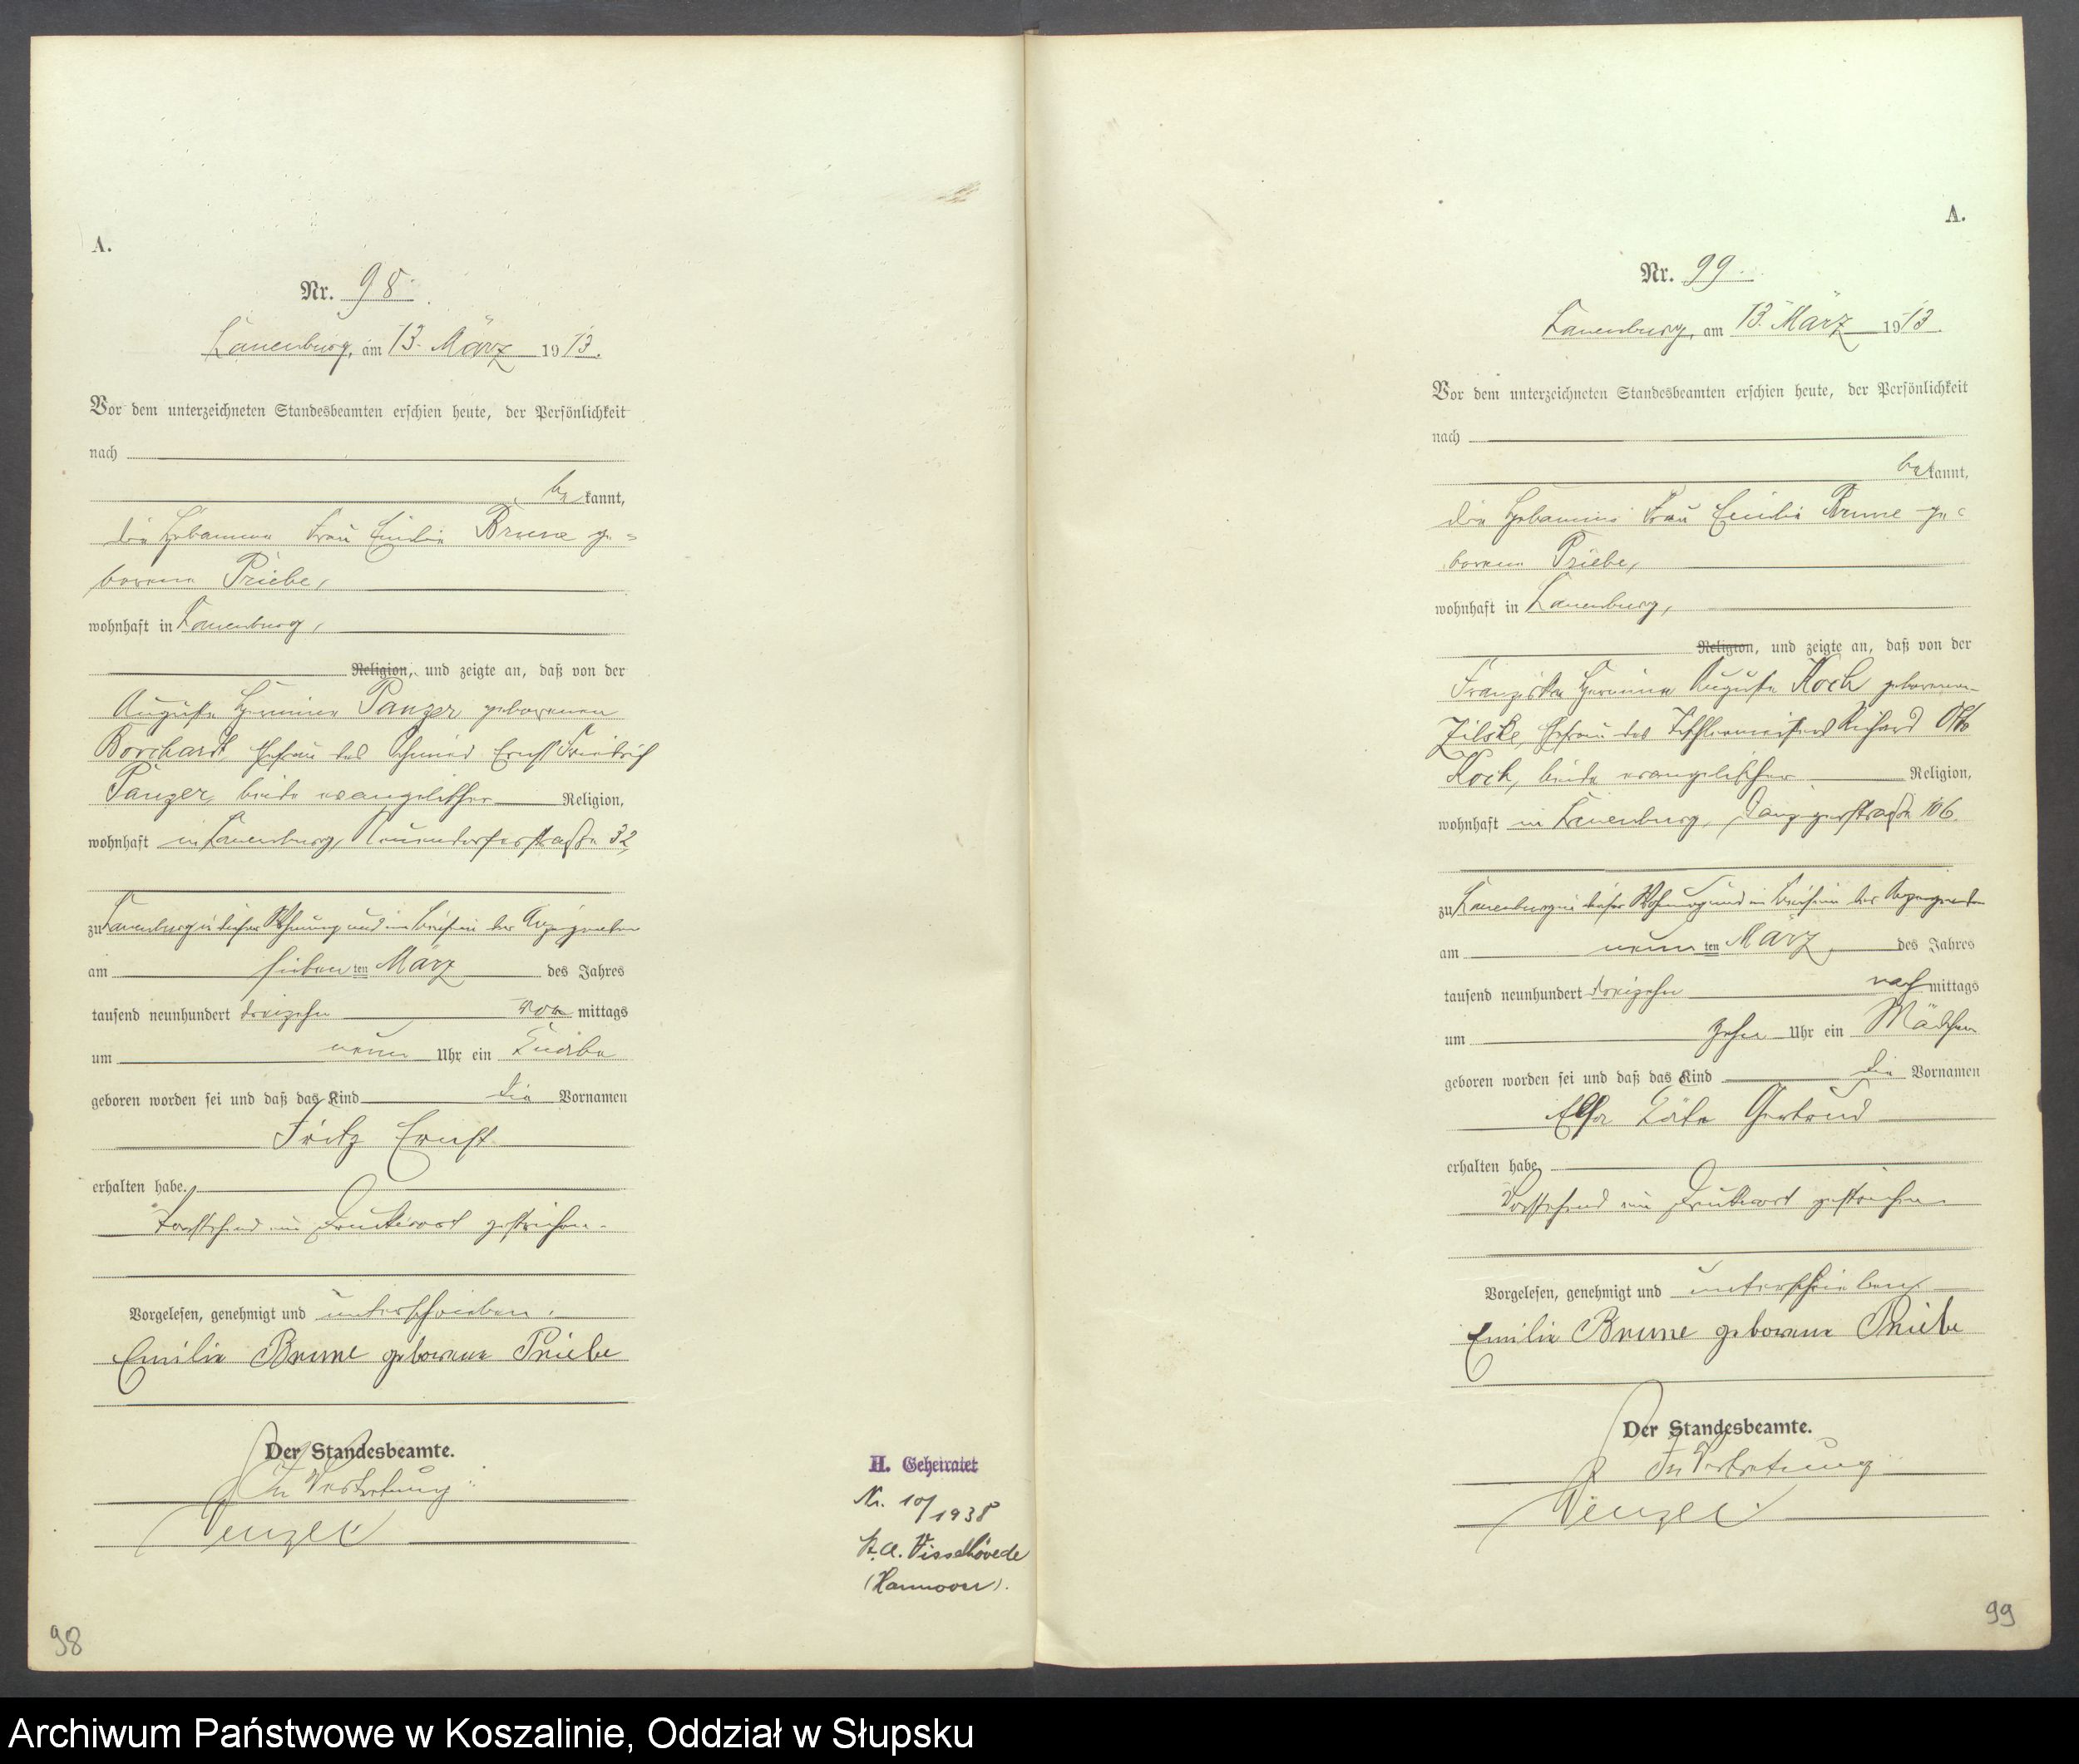 A.
Nr. 98.
Lauenburg, am 13. März 1913.
Vor dem unterzeichneten Standesbeamten erschien heute, der Persönlichkeit
nach
be kannt,
die Hebamme Frau Emilie Brune ge=
borene Priebe,
wohnhaft in Lauenburg,
Religion, und zeigte an, daß von der
Auguste Hermine Panzer geborenen
Borchardt, Ehefrau des Schmied Ernst Friedrich
Panzer, beide evangelischer Religion,
wohnhaft in Lauenburg, Neuendorferstraße 32,
zu Lauenburg in dieser Wohnung und im Beisein der Anzeigenden
am sieben ten März des Jahres
tausend neunhundert dreizehn vor mittags
um neun Uhr ein Knabe
geboren worden sei und daß das Kind die Vornamen
Fritz Ernst
erhalten habe.
Vorstehend ein Druckwort gestrichen.
Vorgelesen, genehmigt und unterschrieben.
Emilie Brune geborene Priebe
Der Standesbeamte.
In Vertretung.
Wenzel
H. Geheiratet
Nr. 10/1938
St. A. Visselhövede
(Hannover).
98
A.
Nr. 99.
Lauenburg, am 13. März 1913.
Vor dem unterzeichneten Standesbeamten erschien heute, der Persönlichkeit
nach
be kannt,
die Hebamme Frau Emilie Brune ge=
borene Priebe,
wohnhaft in Lauenburg,
Religion, und zeigte an, daß von der
Franziska Hermine Auguste Koch geborenen
Zilske, Ehefrau des Tischlermeisters Richard Otto
Koch, beide evangelischer Religion,
wohnhaft in Lauenburg, Danzigerstraße 106
zu Lauenburg in dieser Wohnung und im Beisein der Anzeigenden
am neun ten März, des Jahres
tausend neunhundert dreizehn nach mittags
um zehn Uhr ein Mädchen
geboren worden sei und daß das Kind die Vornamen
Elsa Käte Gertrud
erhalten habe
Vorstehend ein Druckwort gestrichen
Vorgelesen, genehmigt und unterschrieben
Emilie Brune geborene Priebe
Der Standesbeamte.
In Vertretung
Wenzel
99
Archiwum Państwowe w Koszalinie, Oddział w Słupsku